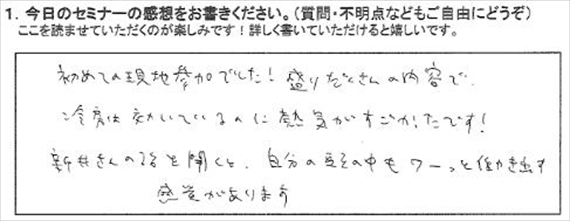 1. 今日のセミナーの感想をお書きください。(質問・不明点などもご自由にどうぞ)
ここを読ませていただくのが楽しみです！詳しく書いていただけると嬉しいです。
初めての現地参加でした！盛りだくさんの内容で、
冷房は効いているのに熱気がすごかったです！
新井さんの話を聞くと、自分の頭の中もワーっと働き出す
感覚があります